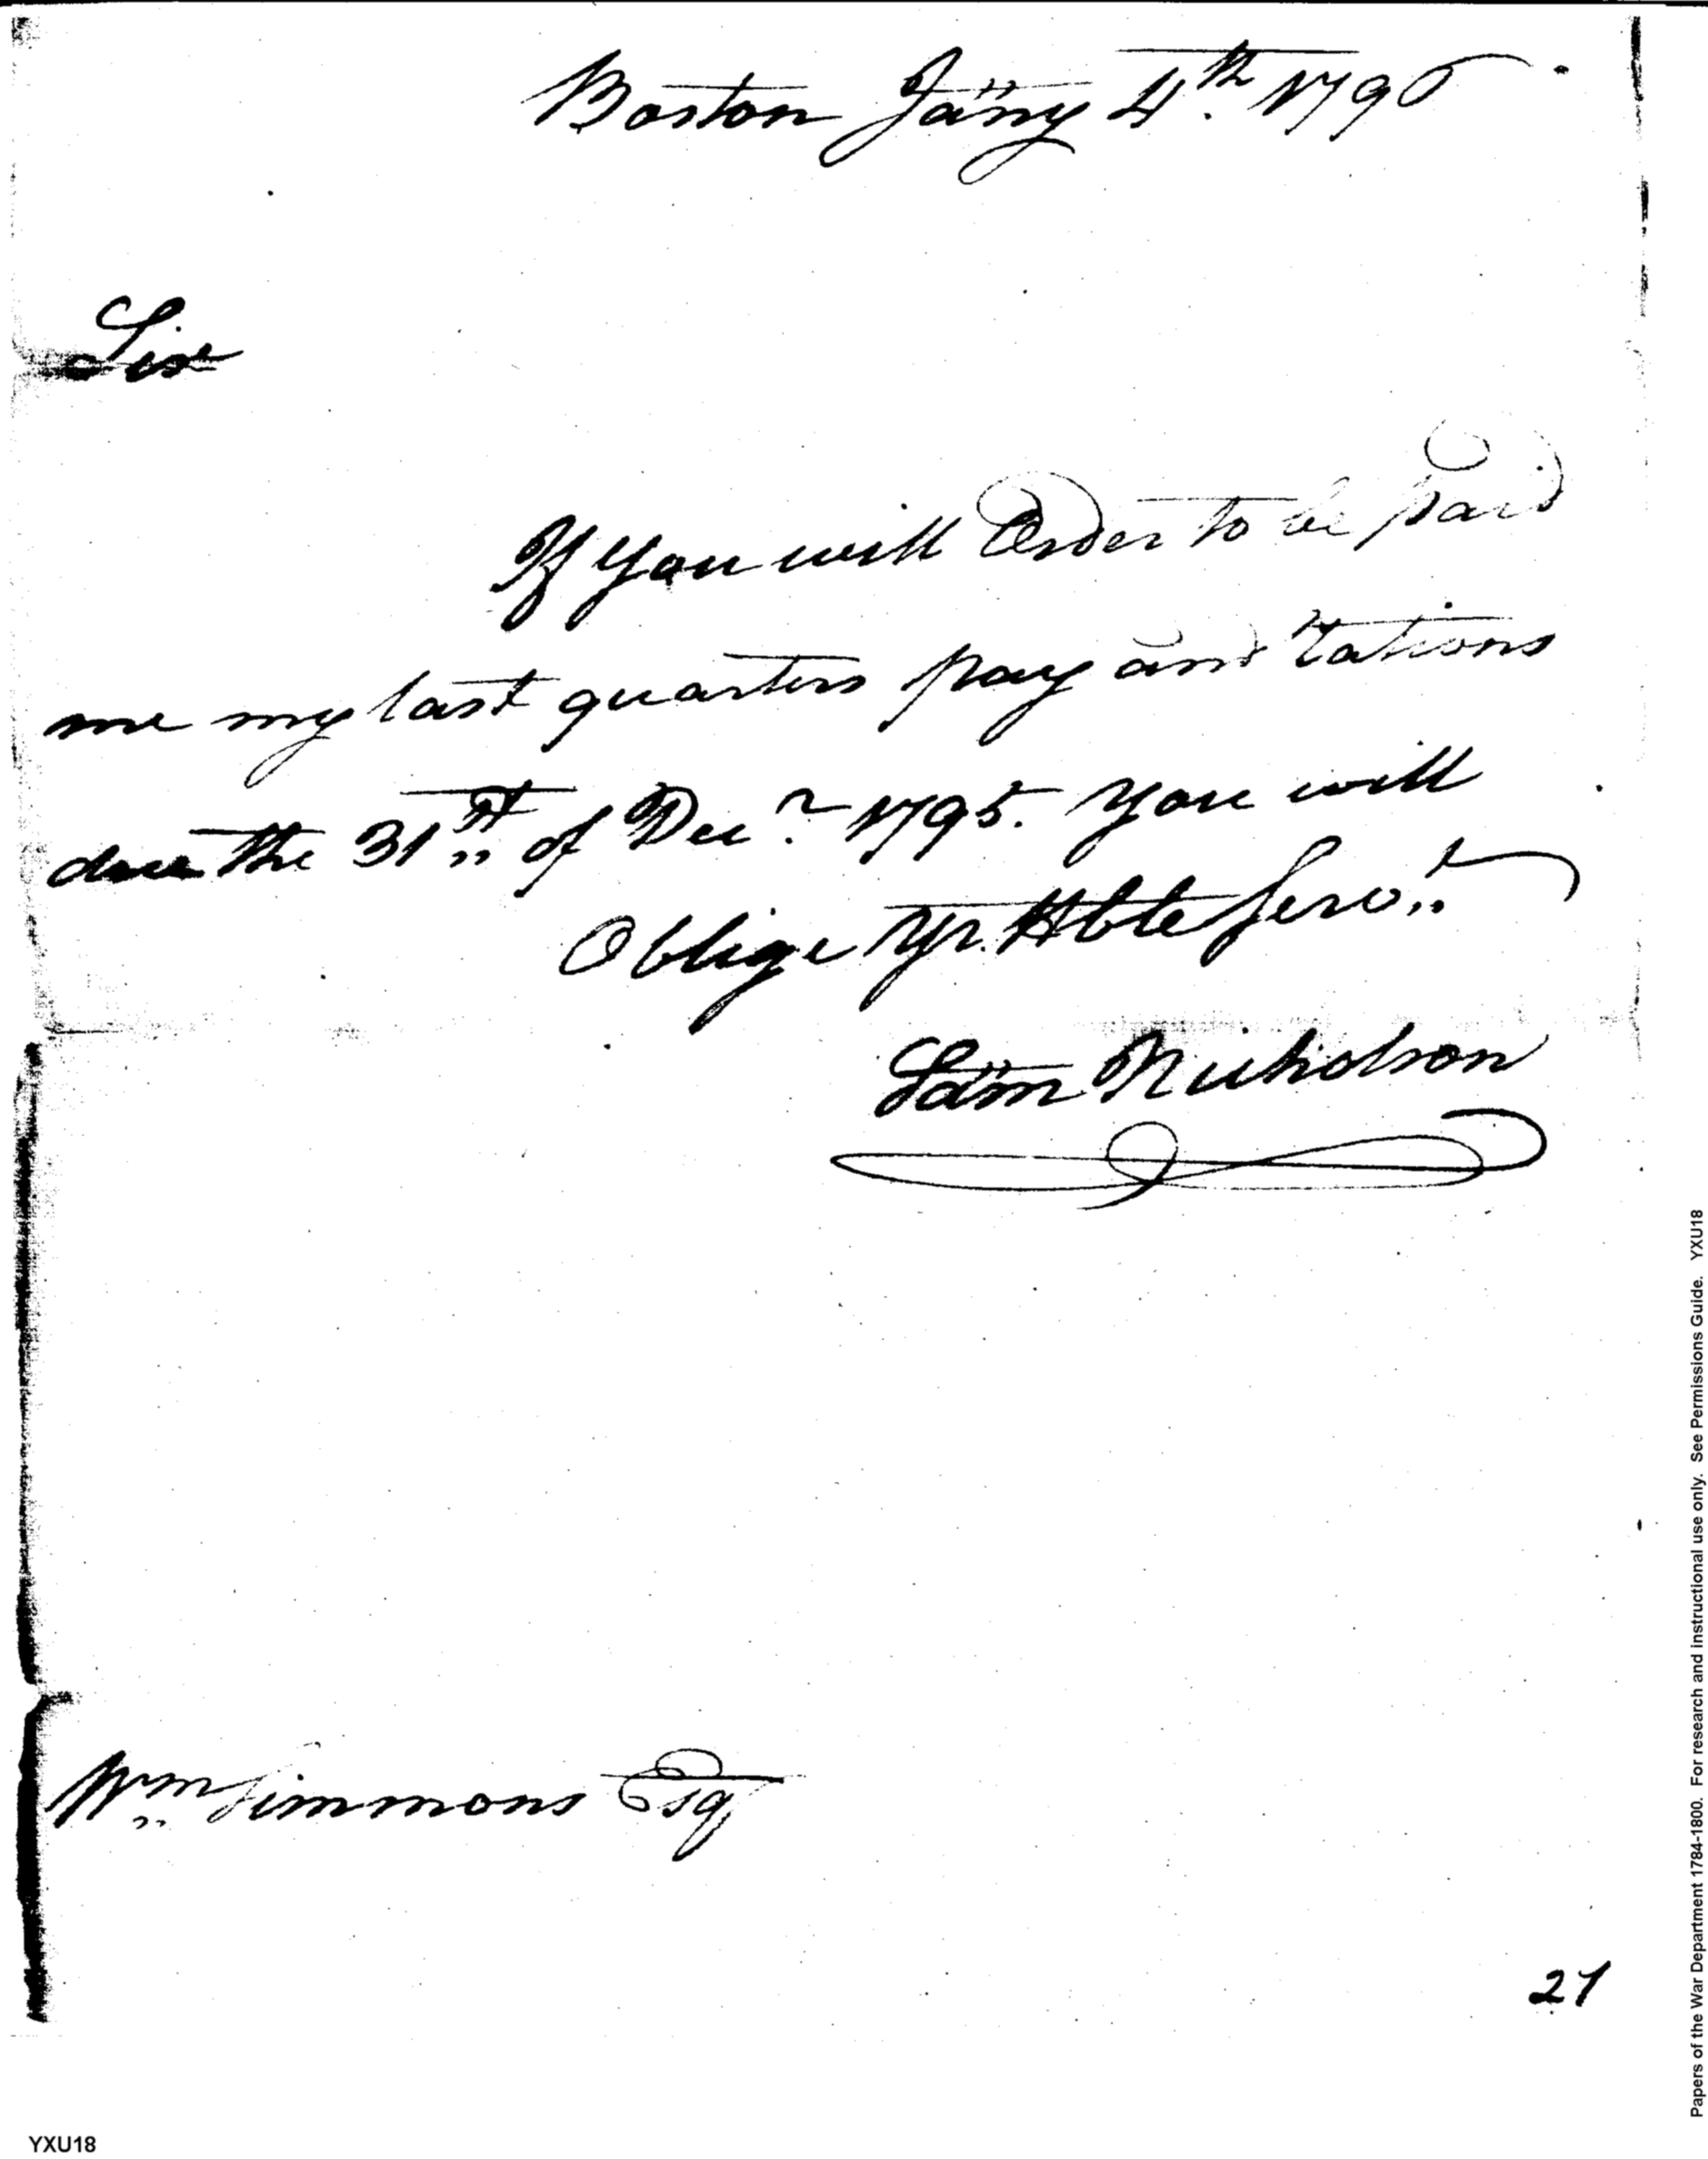 Boston Jany 4th. 1796
Sir
If You will Order to be paid
me my last quarters pay and rations
due the 31st of Decr. 1795. You will
Oblige Yr. Hble Servt.
Sam Nicholson
Wm Simmons Esq
21
YXU18
Papers of the War Department 1784-1800. For research and instructional use only. See Permissions Guide. YXU18